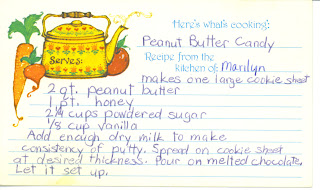 Here's what's cooking:
Peanut Butter Candy
Recipe from the
kitchen of Marilyn
Serves:
makes one large cookie sheet
2 qt. peanut butter
1 pt. honey
2 1/4 cups powdered sugar
1/8 cup vanilla
Add enough dry milk to make
consistency of putty. Spread on cookie sheet
at desired thickness. Pour on melted chocolate.
Let it set up.